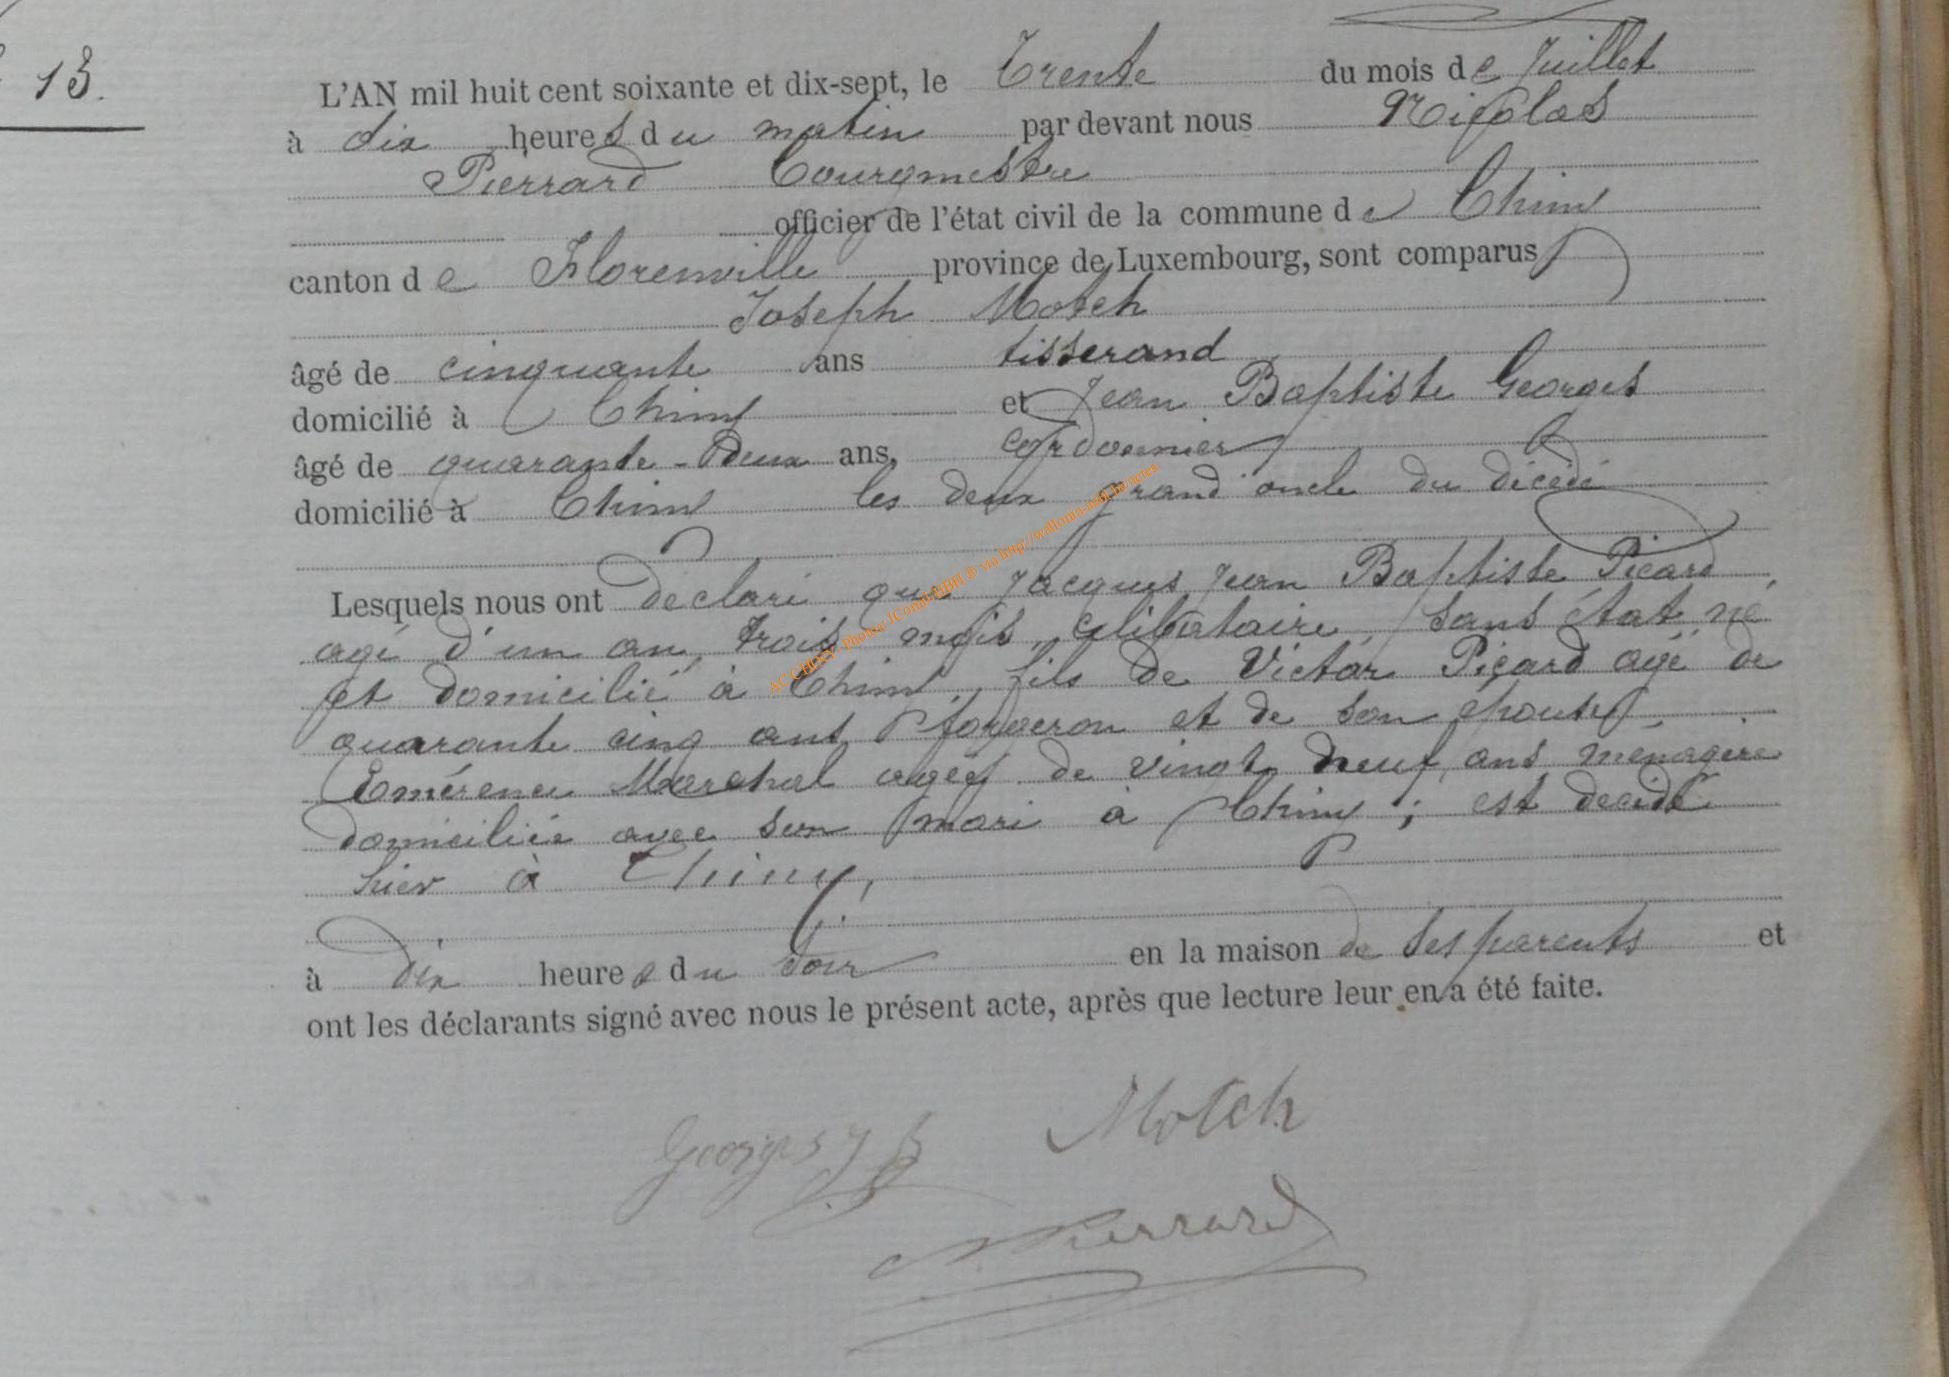 13.
L'AN mil huit cent soixante et dix-sept, le Trente du mois de Juillet
à dix heures du matin par devant nous Nicolas
Pierrard Bourgmestre
officier de l'état civil de la commune de Chiny
canton de Florenville province de Luxembourg, sont comparus
Joseph Motch
âgé de cinquante ans tisserand
domicilié à Chiny et Jean Baptiste Georges
âgé de quarante-deux ans, cordonnier
domicilié à Chiny les deux grand oncle du décédé
Lesquels nous ont declaré que Jacques Jean Baptiste Picard
agé d'un an, trois mois, celibataire, sans état né
et domicilié à Chiny, fils de Victor Picard agé de
quarante cinq ans forgeron et de son épouse
Emérence Marchal agée de vingt neuf ans ménagère
domiciliée avec son mari à Chiny ; est decidé
hier à Chiny,
à dix heures du soir en la maison de ses parents et
ont les déclarants signé avec nous le présent acte, après que lecture leur en a été faite.
Georges J B Motch
N. Pierrard